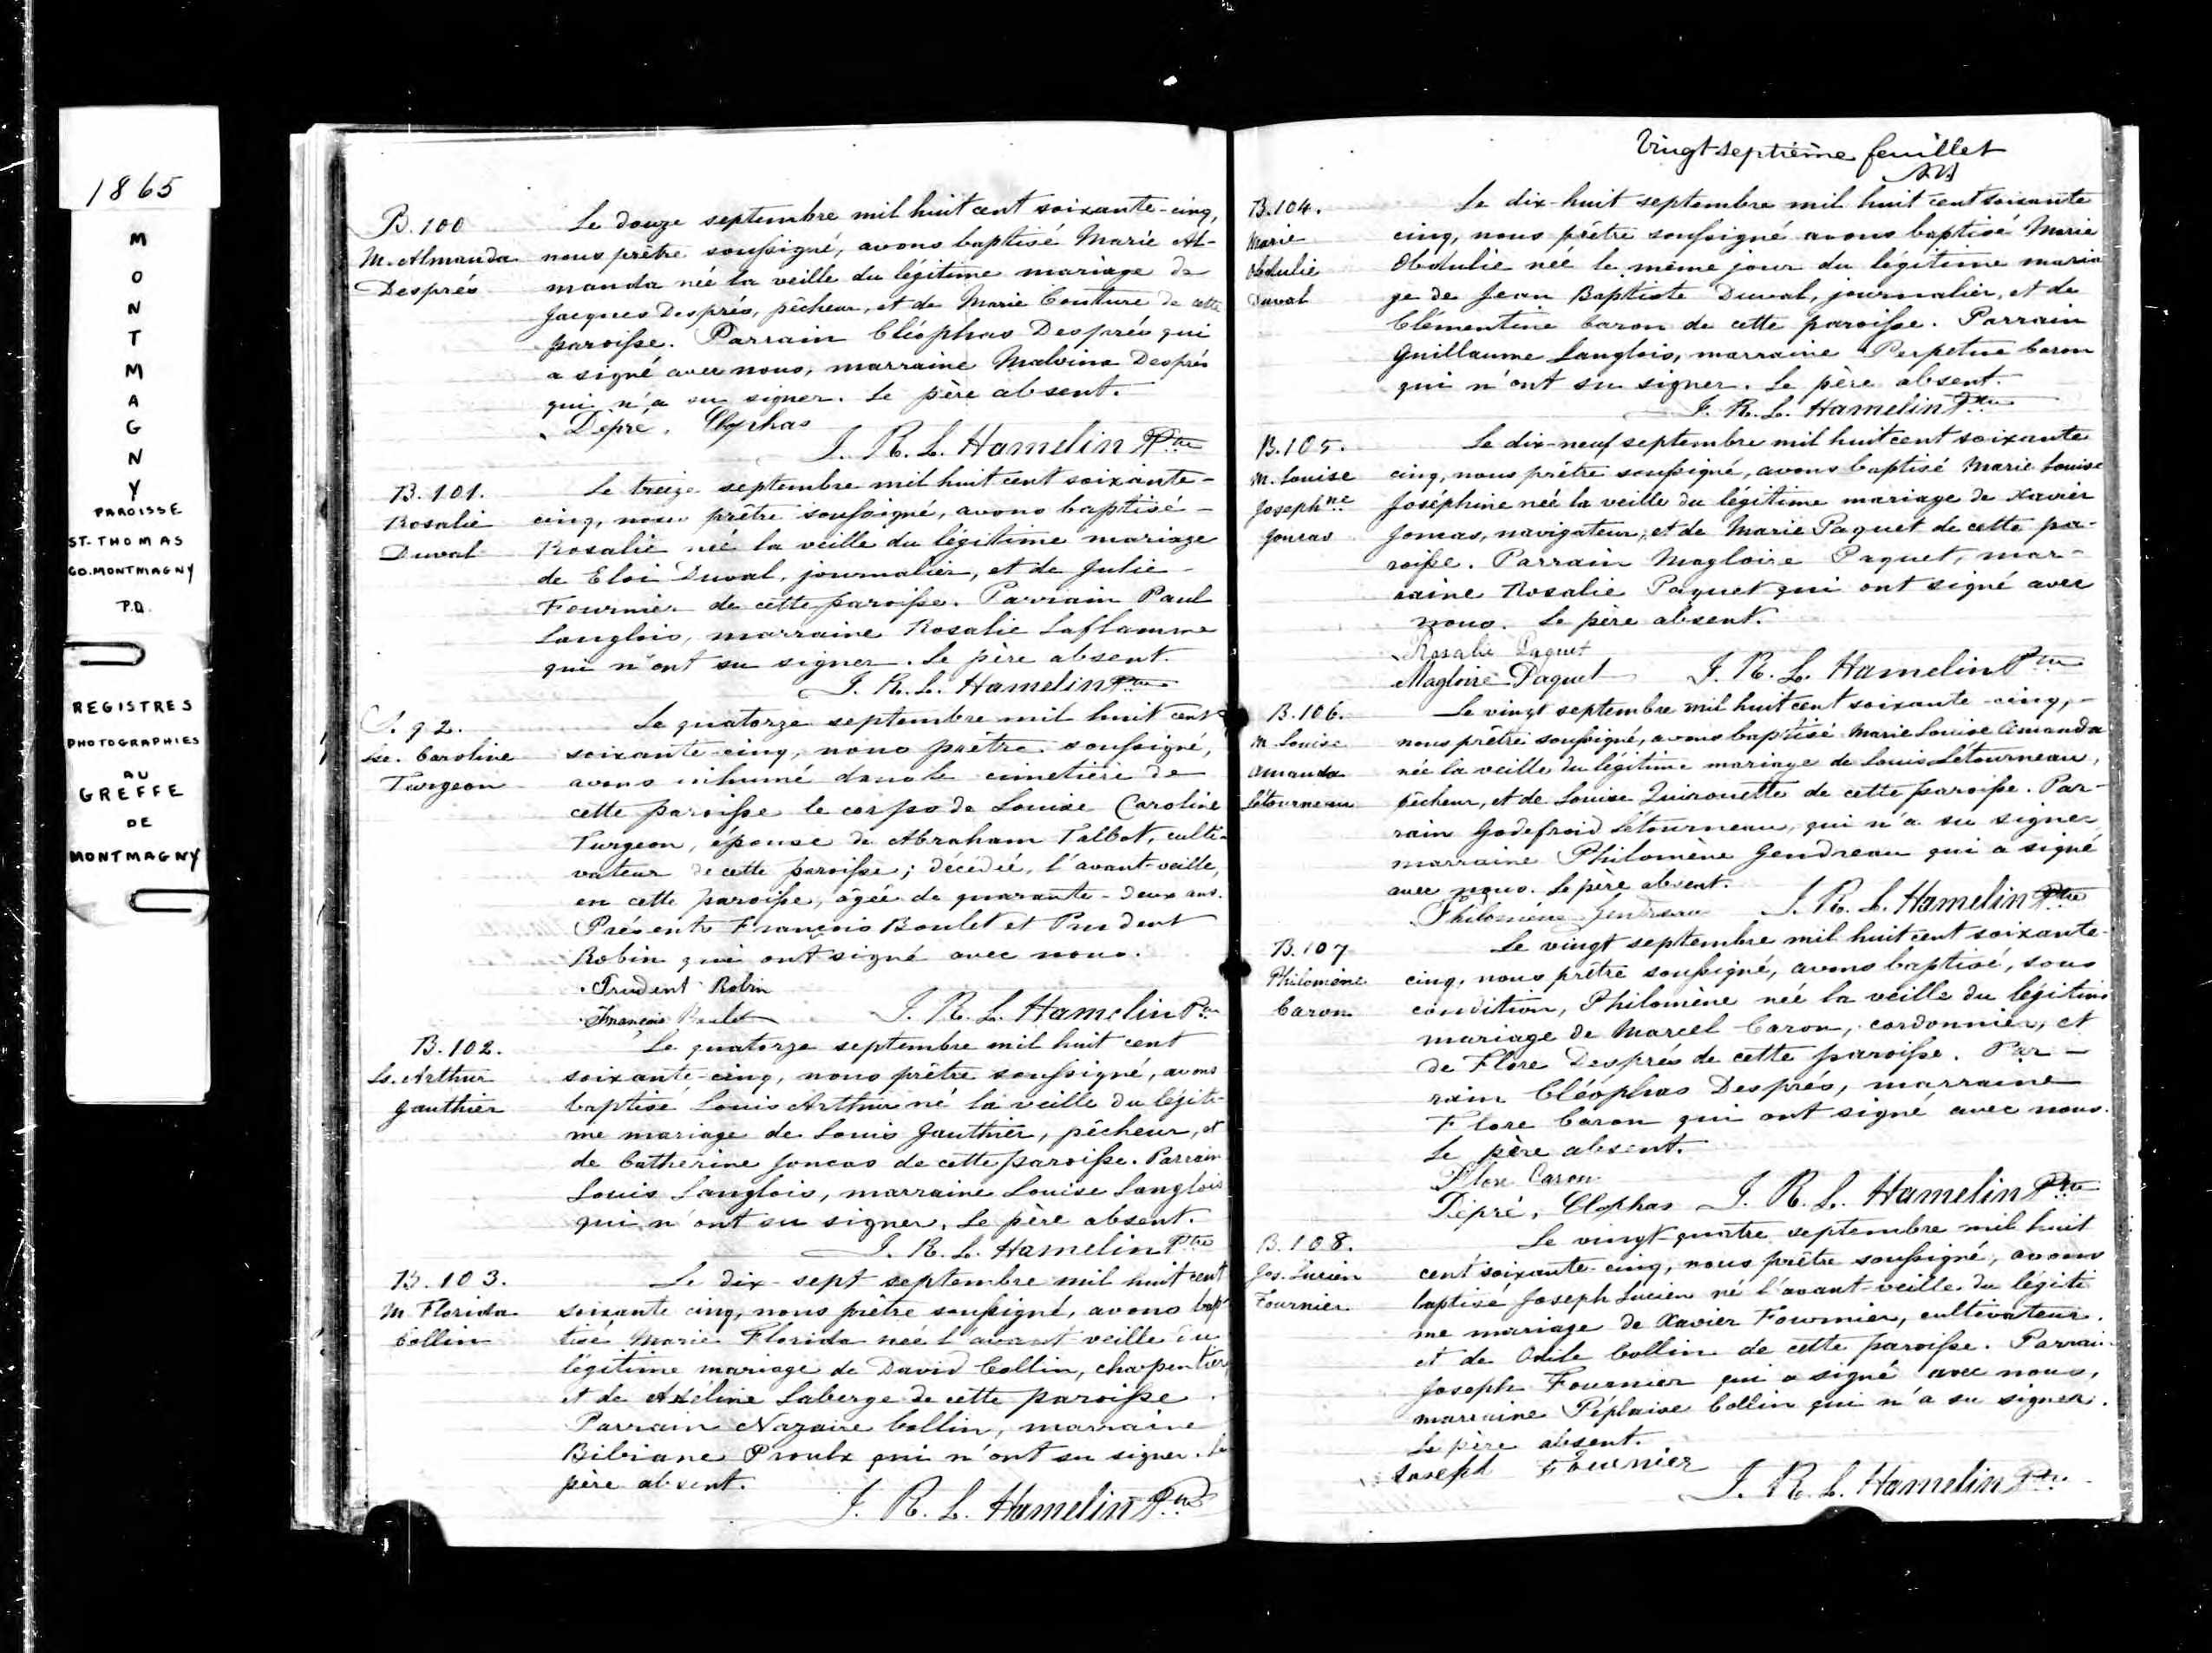 1865
MONTMAGNY
PAROISSE
ST-THOMAS
CO. MONTMAGNY
P.Q.
REGISTRES
PHOTOGRAPHIES
AU
GREFFE
DE
MONTMAGNY
B. 100
M. Almanda
Després
Le douze septembre mil huit cent soixante-cinq,
nous prêtre soussigné, avons baptisé Marie Al-
manda née la veille du légitime mariage de
Jacques Després, pêcheur, et de Marie Couture de cette
paroisse. Parrain Cléophas Després qui
a signé avec nous, marraine Malvina Després
qui n'a su signer. Le père absent.
Dépré, Clophas
J. R. L. Hamelin Ptre
B. 101.
Rosalie
Duval
Le treize septembre mil huit cent soixante-
cinq, nous prêtre soussigné, avons baptisé
Rosalie née la veille du légitime mariage
de Eloi Duval, journalier, et de Julie
Fournier de cette paroisse. Parrain Paul
Langlois, marraine Rosalie Laflamme
qui n'ont su signer. Le père absent.
J. R. L. Hamelin Ptre
S. 92.
Lse. Caroline
Turgeon
Le quatorze septembre mil huit cent
soixante-cinq, nous prêtre soussigné,
avons inhumé dans le cimetière de
cette paroisse le corps de Louise Caroline
Turgeon, épouse de Abraham Talbot, culti-
vateur de cette paroisse; décédée, l'avant-veille,
en cette paroisse, âgée de quarante-deux ans.
Présents François Boulet et Prudent
Robin qui ont signé avec nous.
Prudent Robin
François Boulet
J. R. L. Hamelin Ptre
B. 102.
Ls. Arthur
Gauthier
Le quatorze septembre mil huit cent
soixante-cinq, nous prêtre soussigné, avons
baptisé Louis Arthur né la veille du légiti-
me mariage de Louis Gauthier, pêcheur, et
de Catherine Joncas de cette paroisse. Parrain
Louis Langlois, marraine Louise Langlois
qui n'ont su signer. Le père absent.
J. R. L. Hamelin Ptre
B. 103.
M. Florida
Collin
Le dix-sept septembre mil huit cent
soixante cinq, nous prêtre soussigné, avons bap-
tisé Marie Florida née l'avant veille du
légitime mariage de David Collin, charpentier,
et de Axéline Laberge de cette paroisse.
Parrain Nazaire Collin, marraine
Bibiane Proulx qui n'ont su signer. Le
père absent.
J. R. L. Hamelin Ptre
Vingt septième feuillet
B. 104.
Marie
Obdulie
Duval
Le dix-huit septembre mil huit cent soixante
cinq, nous prêtre soussigné avons baptisé Marie
Obdulie née le même jour du légitime maria
ge de Jean Baptiste Duval, journalier, et de
Clémentine Caron de cette paroisse. Parrain
Guillaume Langlois, marraine Perpetue Caron
qui n'ont su signer. Le père absent.
J. R. L. Hamelin Ptre
B. 105.
M. Louise
Josephne
Joncas
Le dix-neuf septembre mil huit cent soixante
cinq, nous prêtre soussigné, avons baptisé Marie Louise
Joséphine née la veille du légitime mariage de Xavier
Joncas, navigateur, et de Marie Paquet de cette pa-
roisse. Parrain Magloire Paquet, mar-
raine Rosalie Paquet qui ont signé avec
nous. Le père absent.
Rosalie Paquet
Magloire Paquet
J. R. L. Hamelin Ptre
B. 106.
M. Louise
Amanda
Létourneau
Le vingt septembre mil huit cent soixante-cinq,
nous prêtre soussigné, avons baptisé Marie Louise Amanda
née la veille du légitime mariage de Louis Létourneau,
pêcheur, et de Louise Quirouette de cette paroisse. Par-
rain Godefroid Létourneau, qui n'a su signer,
marraine Philomène Gendreau qui a signé
avec nous. Le père absent.
Philomène Gendreau
J. R. L. Hamelin Ptre
B. 107
Philomène
Caron
Le vingt septembre mil huit cent soixante-
cinq, nous prêtre soussigné, avons baptisé, sous
condition, Philomène née la veille du légitime
mariage de Marcel Caron, cordonnier, et
de Flore Després de cette paroisse. Par-
rain Cléophas Després, marraine
Flore Caron qui ont signé avec nous.
Le père absent.
Flore Caron
Dépré, Clophas
J. R. L. Hamelin Ptre
B. 108.
Jos. Lucien
Fournier
Le vingt-quatre septembre mil huit
cent soixante-cinq, nous prêtre soussigné, avons
baptisé Joseph Lucien né l'avant-veille du légiti
me mariage de Xavier Fournier, cultivateur,
et de Odile Collin de cette paroisse. Parrain
Joseph Fournier qui a signé avec nous,
marraine Péplaise Collin qui n'a su signer.
Le père absent.
Joseph Fournier
J. R. L. Hamelin Ptre